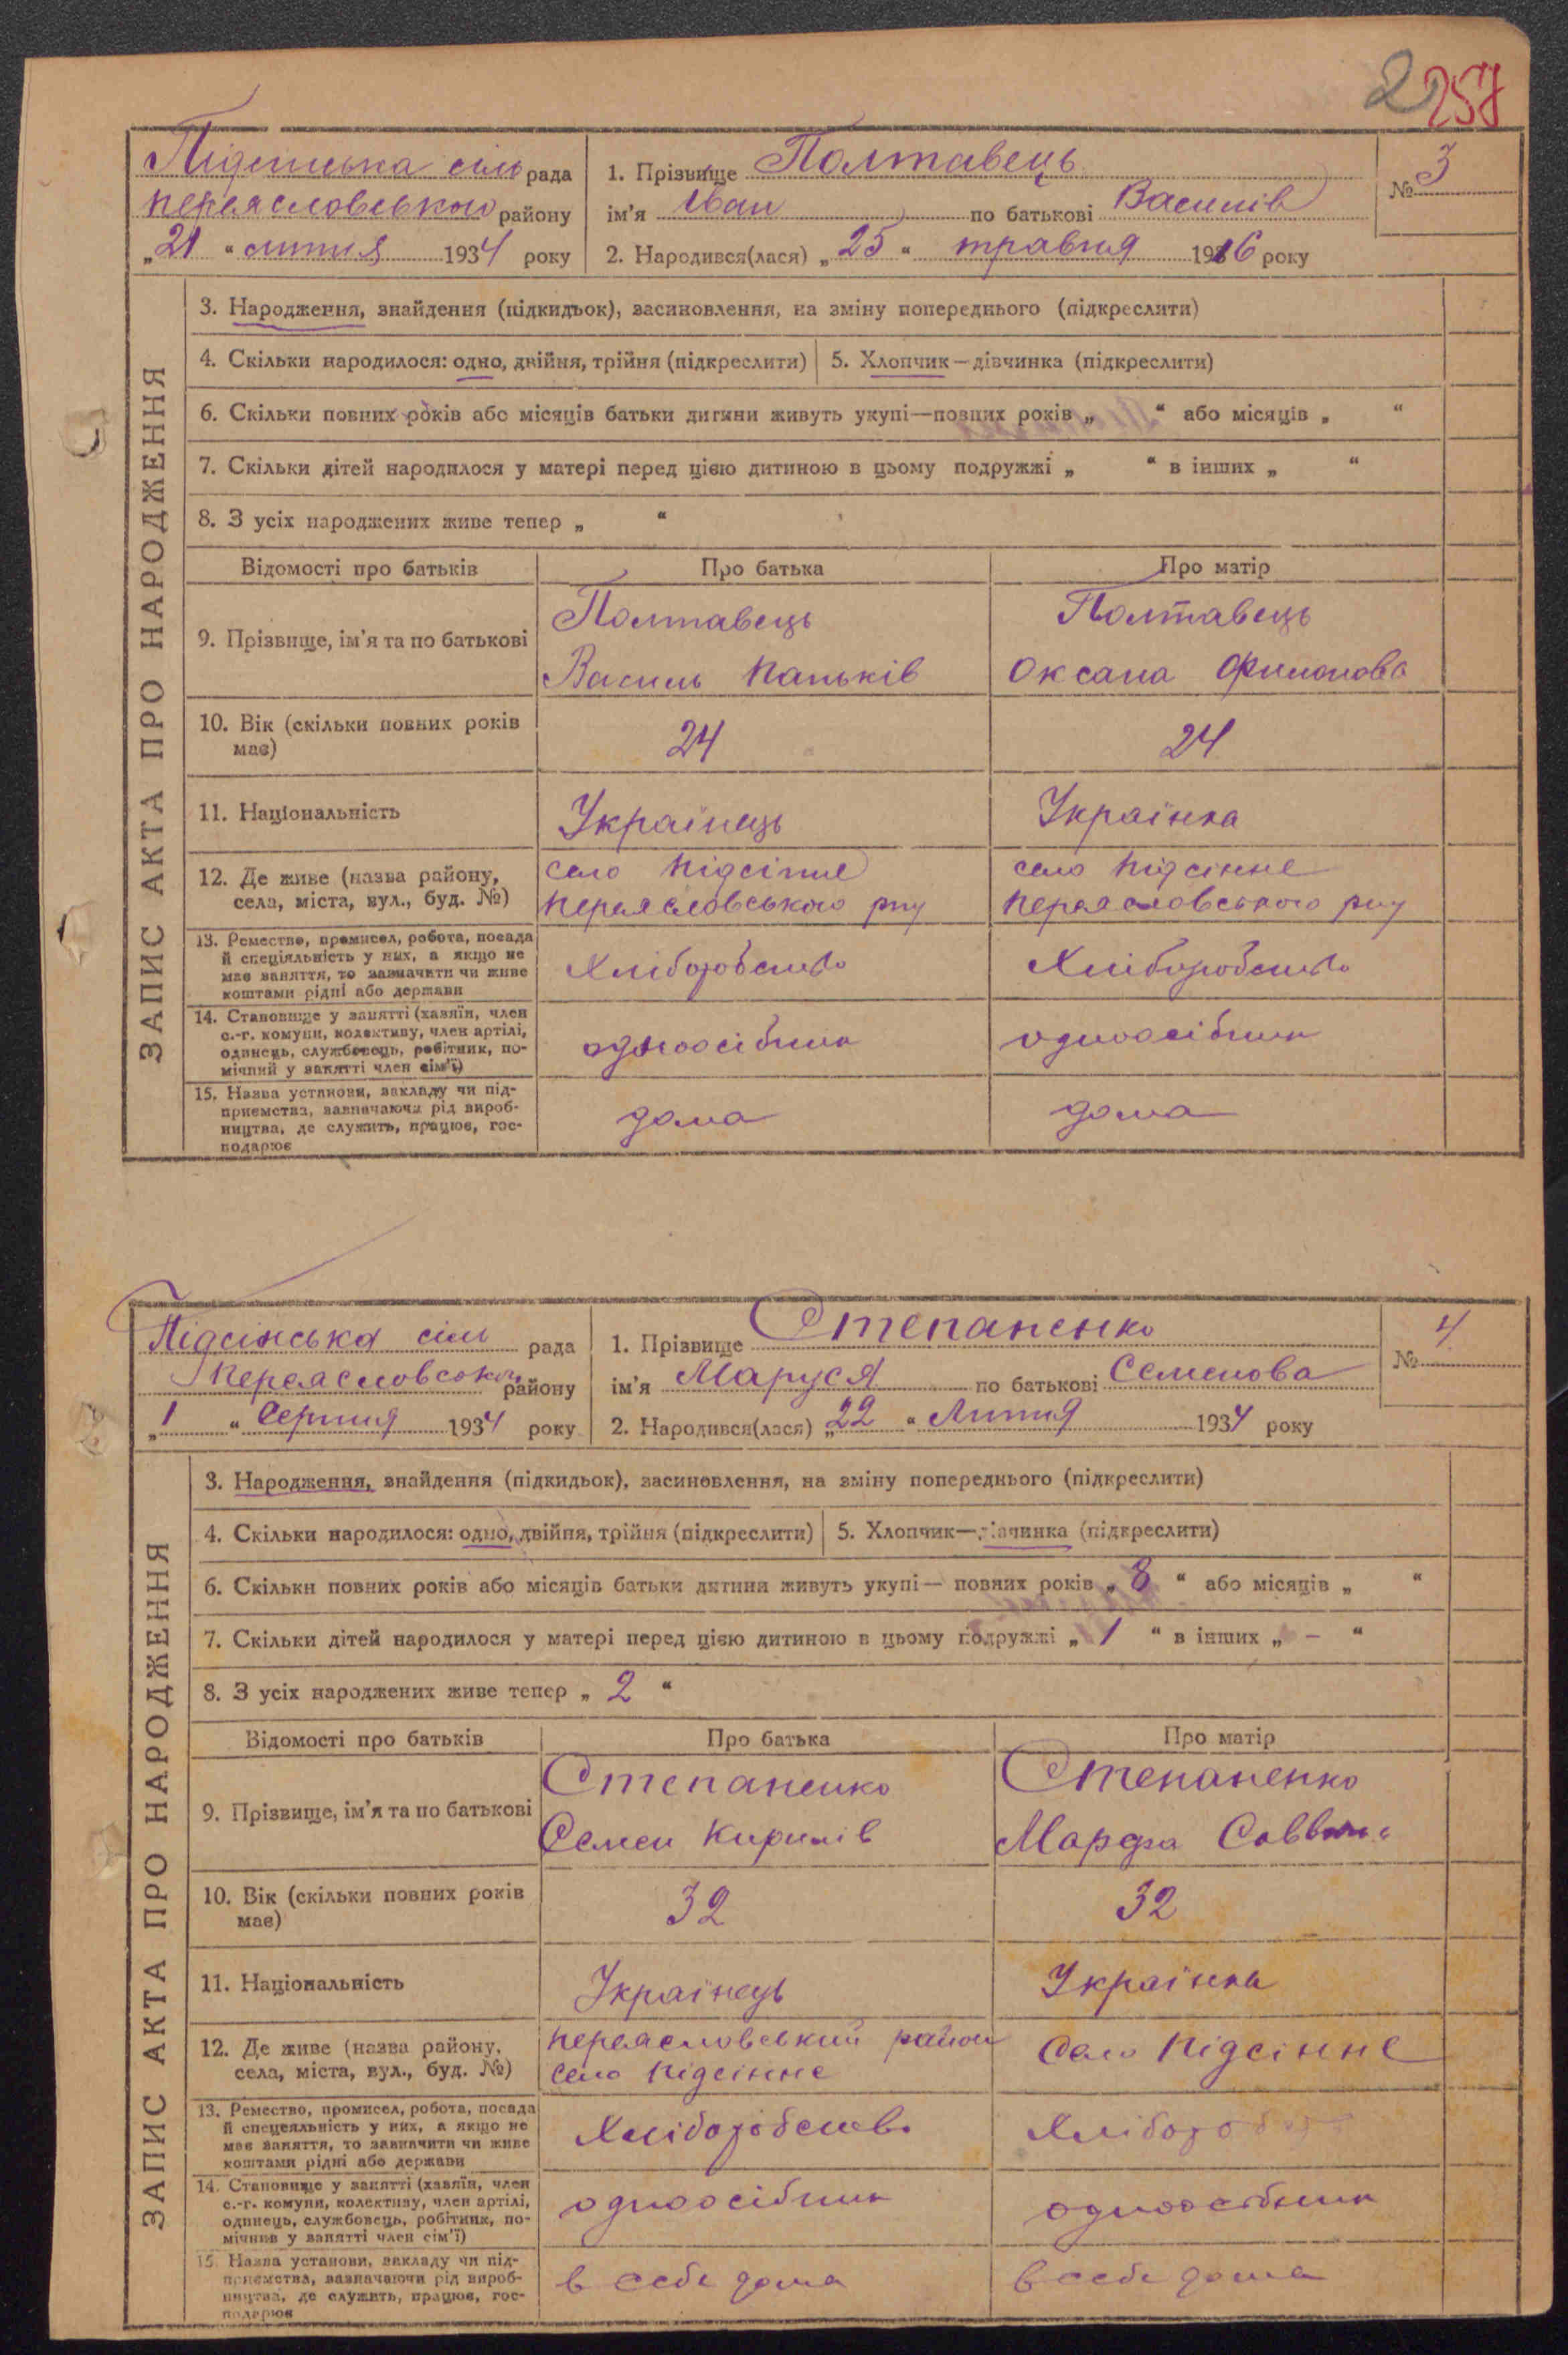 2 257
Підсінська сіль рада
Переясловського району
„21 “ липня 1934 року
1. Прізвище Полтавець
ім'я Іван по батькові Василів
2. Народився(лася) „ 25 “ травня 1916 року
№ 3
ЗАПИС АКТА ПРО НАРОДЖЕННЯ
3. Народження, знайдення (підкидьок), засиновлення, на зміну попереднього (підкреслити)
4. Скільки народилося: одно, двійня, трійня (підкреслити) 5. Хлопчик—дівчинка (підкреслити)
6. Скільки повних років або місяців батьки дитини живуть укупі—повних років „ “ або місяців „ “
7. Скільки дітей народилося у матері перед цією дитиною в цьому подружжі „ “ в інших „ “
8. З усіх народжених живе тепер „ “
Відомості про батьків Про батька Про матір
9. Прізвище, ім'я та по батькові
Полтавець
Василь Паньків
Полтавець
Оксана Филонова
10. Вік (скільки повних років
має)
24 24
11. Національність Українець Українка
12. Де живе (назва району,
села, міста, вул., буд. №)
село Підсінне
Переясловського рну
село Підсінне
Переясловського рну
13. Ремество, промисел, робота, посада
й спеціяльність у них, а якщо не
має заняття, то зазначити чи живе
коштами рідні або держави
Хліборобство Хліборобство
14. Становище у занятті (хазяїн, член
с.-г. комуни, колективу, член артілі,
одинець, службовець, робітник, по-
мічний у занятті член сім'ї)
одноосібник одноосібник
15. Назва установи, закладу чи під-
приємства, зазначаючи рід вироб-
ництва, де служить, працює, гос-
подарює
дома дома
Підсінська сіль рада
Переясловсько району
„ 1 “ Серпня 1934 року
1. Прізвище Степаненко
ім'я Маруся по батькові Семенова
2. Народився(лася) „22 “ Липня 1934 року
№ 4
ЗАПИС АКТА ПРО НАРОДЖЕННЯ
3. Народження, знайдення (підкидьок), засиновлення, на зміну попереднього (підкреслити)
4. Скільки народилося: одно, двійня, трійня (підкреслити) 5. Хлопчик—дівчинка (підкреслити)
6. Скільки повних років або місяців батьки дитини живуть укупі— повних років „ 8 “ або місяців „ “
7. Скільки дітей народилося у матері перед цією дитиною в цьому подружжі „ 1 “ в інших „ – “
8. З усіх народжених живе тепер „ 2 “
Відомості про батьків Про батька Про матір
9. Прізвище, ім'я та по батькові
Степаненко
Семен Кирилів
Степаненко
Марфа
10. Вік (скільки повних років
має)
32 32
11. Національність Українець Українка
12. Де живе (назва району,
села, міста, вул., буд. №)
Переясловський район
село Підсінне
Село Підсінне
13. Ремество, промисел, робота, посада
й спецеяльність у них, а якщо не
має заняття, то зазначити чи живе
коштами рідні або держави
Хліборобство
14. Становище у занятті (хазяїн, член
с.-г. комуни, колективу, член артілі,
одинець, службовець, робітник, по-
мічний у занятті член сім'ї)
одноосібник одноосібник
15. Назва установи, закладу чи під-
приємства, зазначаючи рід вироб-
ництва, де служить, працює, гос-
подарює
в себе дома в себе дома